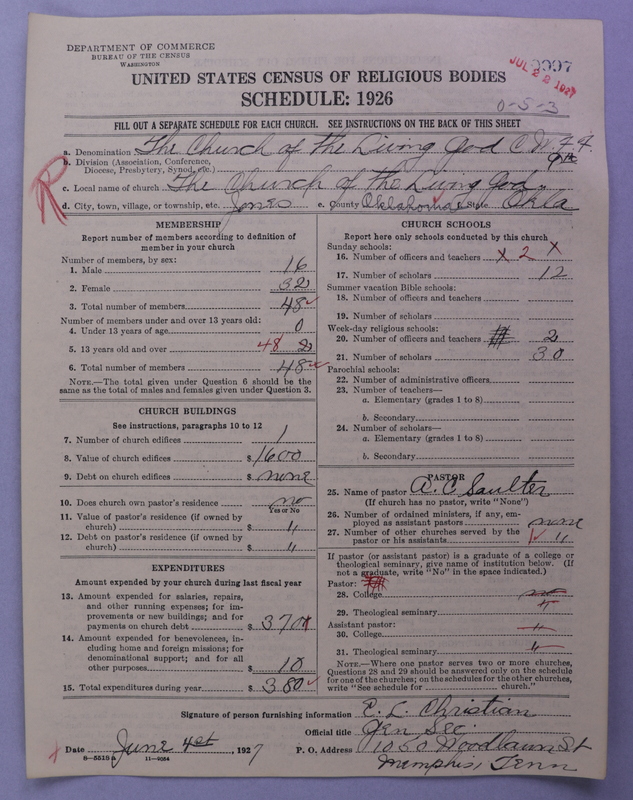 DEPARTMENT OF COMMERCE
BUREAU OF THE CENSUS
WASHINGTON
JUL 22 1927
0-5-3
UNITED STATES CENSUS OF RELIGIOUS BODIES
SCHEDULE: 1926
FILL OUT A SEPARATE SCHEDULE FOR EACH CHURCH. SEE INSTRUCTIONS ON THE BACK OF THIS SHEET
a. Denomination The Church of the Living God C. W. F. F.
b. Division (Association, Conference, Diocese, Presbytery, Synod, etc.)
c. Local name of church The Church of the Living God
d. City, town, village, or township, etc. Jones e. County Oklahoma f. State Okla
R
MEMBERSHIP
Report number of members according to definition of member in your church
Number of members, by sex:
1. Male 16
2. Female 32
3. Total number of members 48
Number of members under and over 13 years old:
4. Under 13 years of age 0
5. 13 years old and over 48
6. Total number of members 48
NOTE.—The total given under Question 6 should be the same as the total of males and females given under Question 3.
CHURCH BUILDINGS
See instructions, paragraphs 10 to 12
7. Number of church edifices 1
8. Value of church edifices $ 1600
9. Debt on church edifices $ none
10. Does church own pastor's residence no
Yes or No
11. Value of pastor's residence (if owned by church) $ "
12. Debt on pastor's residence (if owned by church) $ "
EXPENDITURES
Amount expended by your church during last fiscal year
13. Amount expended for salaries, repairs, and other running expenses; for improvements or new buildings; and for payments on church debt $ 370
14. Amount expended for benevolences, including home and foreign missions; for denominational support; and for all other purposes $ 10
15. Total expenditures during year $ 380
CHURCH SCHOOLS
Report here only schools conducted by this church
Sunday schools:
16. Number of officers and teachers x 2 x
17. Number of scholars 12
Summer vacation Bible schools:
18. Number of officers and teachers
19. Number of scholars
Week-day religious schools:
20. Number of officers and teachers 2
21. Number of scholars 30
Parochial schools:
22. Number of administrative officers
23. Number of teachers—
a. Elementary (grades 1 to 8)
b. Secondary
24. Number of scholars—
a. Elementary (grades 1 to 8)
b. Secondary
PASTOR
25. Name of pastor A. C. Saulter
(If church has no pastor, write "None")
26. Number of ordained ministers, if any, employed as assistant pastors none
27. Number of other churches served by the pastor or his assistants "
If pastor (or assistant pastor) is a graduate of a college or theological seminary, give name of institution below. (If not a graduate, write "No" in the space indicated.)
Pastor:
28. College no
29. Theological seminary "
Assistant pastor:
30. College "
31. Theological seminary "
NOTE.—Where one pastor serves two or more churches, Questions 28 and 29 should be answered only on the schedule for one of the churches; on the schedules for the other churches, write "See schedule for church."
Signature of person furnishing information E. L. Christian
Official title Gen Sec
Date June 4st, 1927 P. O. Address 1050 Woodlawn St
Memphis, Tenn
8—5518a 11—9054